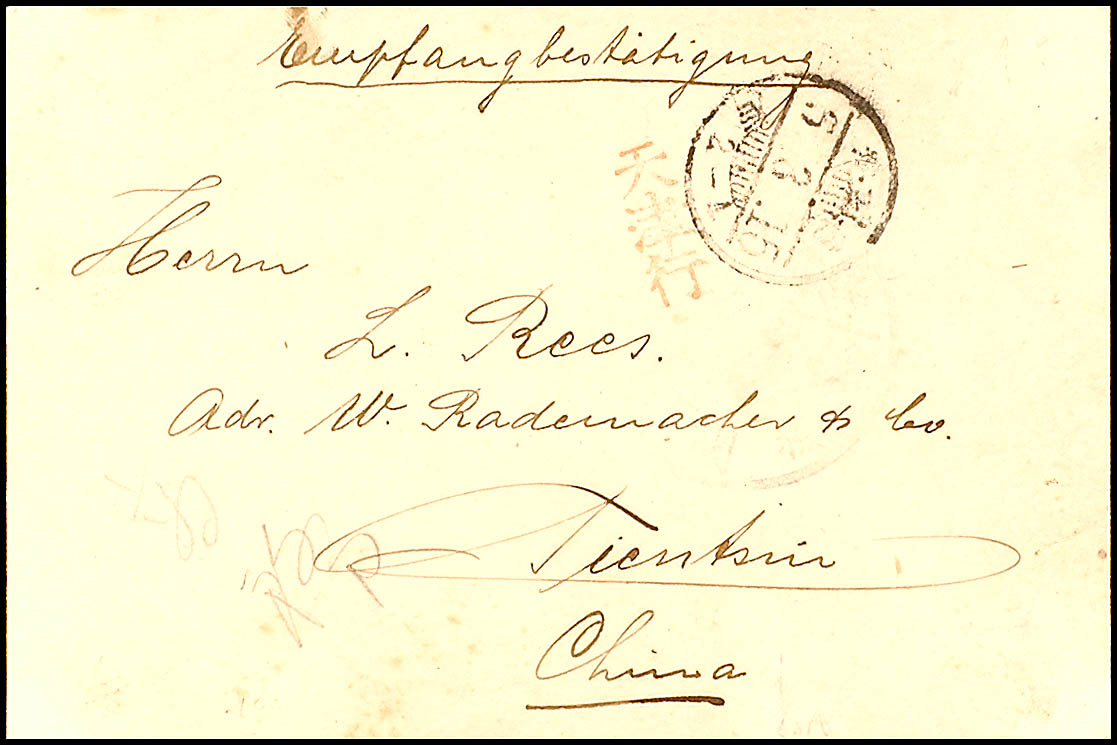 Empfangbestätigung
5
3
15
天
行
Herrn
L. Rees.
Adr. W. Rademacher & Co.
Tientsin
China